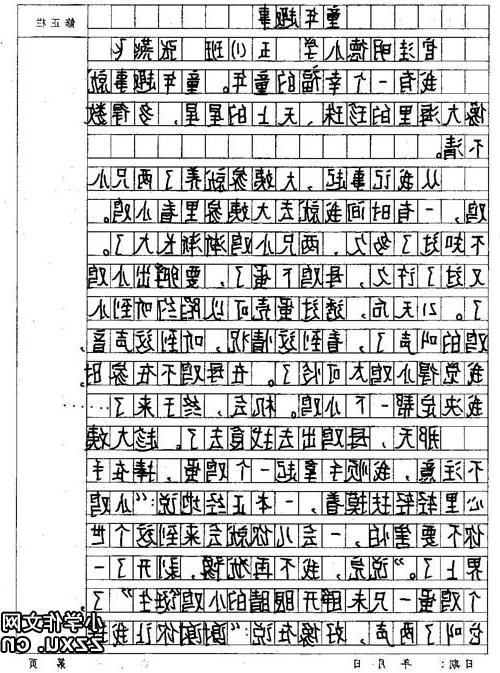 童年趣事
修正栏
官洼明德小学 五(1)班 张燕飞
我有一个幸福的童年。童年趣事就
像大海里的珍珠、天上的星星,多得数
不清。
从我记事起,大姨家就养了两只小
鸡,一有时间我就去大姨家里看小鸡。
不知过了多久,两只小鸡渐渐长大了。
又过了许久,母鸡下蛋了,要孵出小鸡
了。21天后,透过蛋壳可以隐约听到小
鸡的叫声了,看到这情况,听到这声音,
我觉得小鸡太可怜了。在母鸡不在家时,
我决定帮一下小鸡。机会,终于来了……
那天,母鸡出去找食去了。趁大姨
不注意,我顺手拿起一个鸡蛋,捧在手
心里轻轻抚摸着,一本正经地说:“小鸡
你不要害怕,一会儿你就会来到这个世
界上了。”说完,我不再犹豫,剥开了一
个鸡蛋一只未睁开眼睛的小鸡“诞生”了
它叫了两声,好像在说:“谢谢你让我
日期: 年 月 日 第 页
小学作文网
zzxu.cn